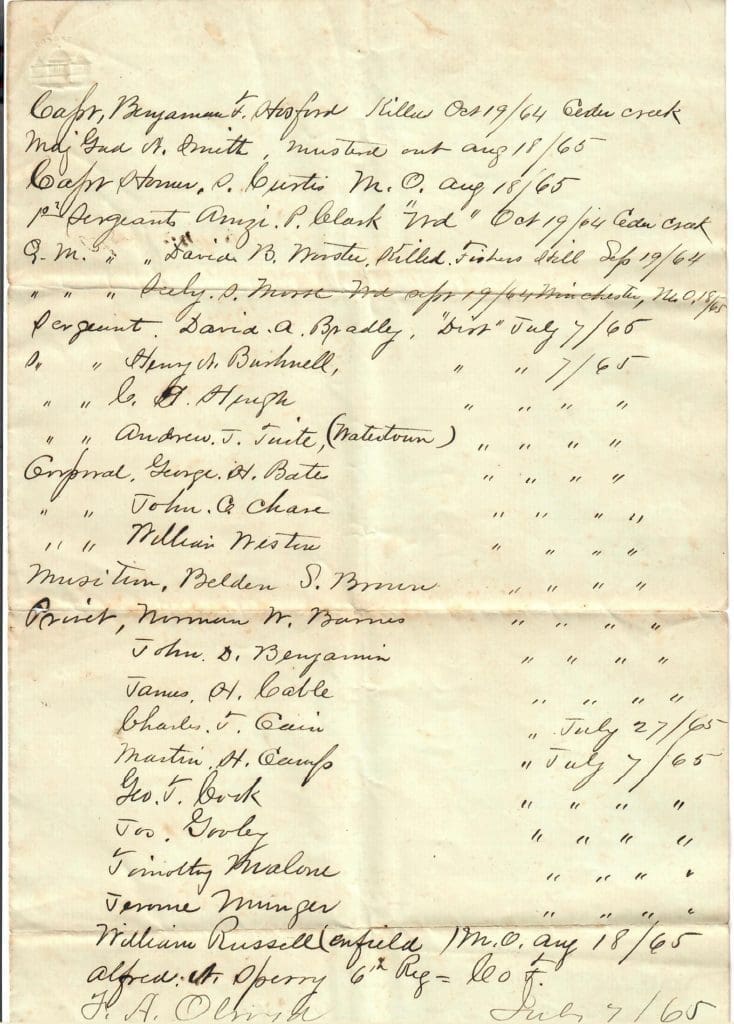 Capt, Benjaman F. Hosford Killed Oct 19/64 Ceder creek
Maj Gad N. Smith, musterd out aug 18/65
Capt Homer. S. Curtis M. O. aug 18/65
1st Sergeants Amzi. P. Clark "Wd" Oct 19/64 Ceder creek
Q. M. " " David B. Wooster, Killed. Fishers Hill Sep 19/64
" " " Seely. S. Morse Wd sept 19/64 Winchester, M.O. 18/65
Sergeant. David. A. Bradley, "Dist" July 7/65
S " " Henry N. Bushnell, " " 7/65
" " C. Hough " " " "
" " Andrew. J. Tuite, (Watertown) " " " "
Corporal, George. H. Bates " " " "
" " John. C. Chase " " " "
" " William Weston " " " "
Musition, Belden S. Brown " " " "
Privet, Norman W. Barnes " " " "
John. D. Benjamin " " " "
James. H. Cable " " " "
Charles. T. Cain " July 27/65
Martin. H. Camp " July 7/65
Geo. T. Cook " " " "
Jos. Gooley " " " "
Timothy Malone " " " "
Jerome Munger " " " "
William Russell (enfield) M. O. aug 18/65
Alfred. N. Sperry 6th Reg = Co F.
F. A. July 7/65